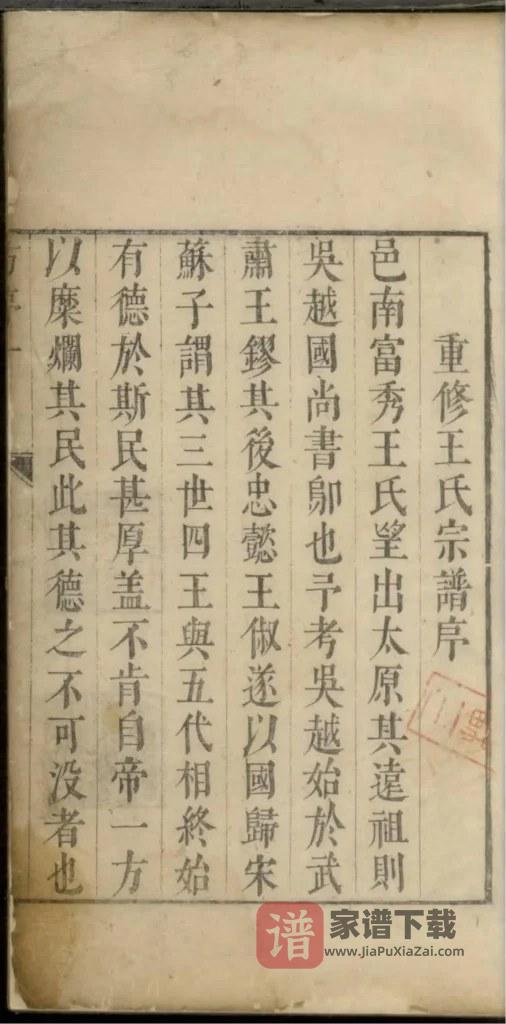 重修王氏宗譜序
邑南富秀王氏望出太原其遠祖則
吳越國尚書郎也予考吳越始於武
肅王鏐其後忠懿王俶遂以國歸宋
蘇子謂其三世四王與五代相終始
有德於斯民甚厚盖不肯自帝一方
以糜爛其民此其德之不可没者也
谱
家谱下载
www.JiaPuXiaZai.com